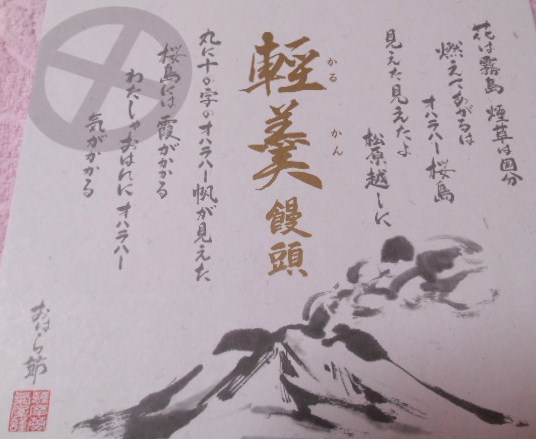 花は霧島 煙草は国分
燃えてあがるは
オハラハー 桜島
見えた見えたよ
松原越しに
輕羹饅頭
かるかん
丸に十の字のオハラハー 帆が見えた
桜島には霞がかかる
わたしゃおはんに オハラハー
気がかかる
おはら節